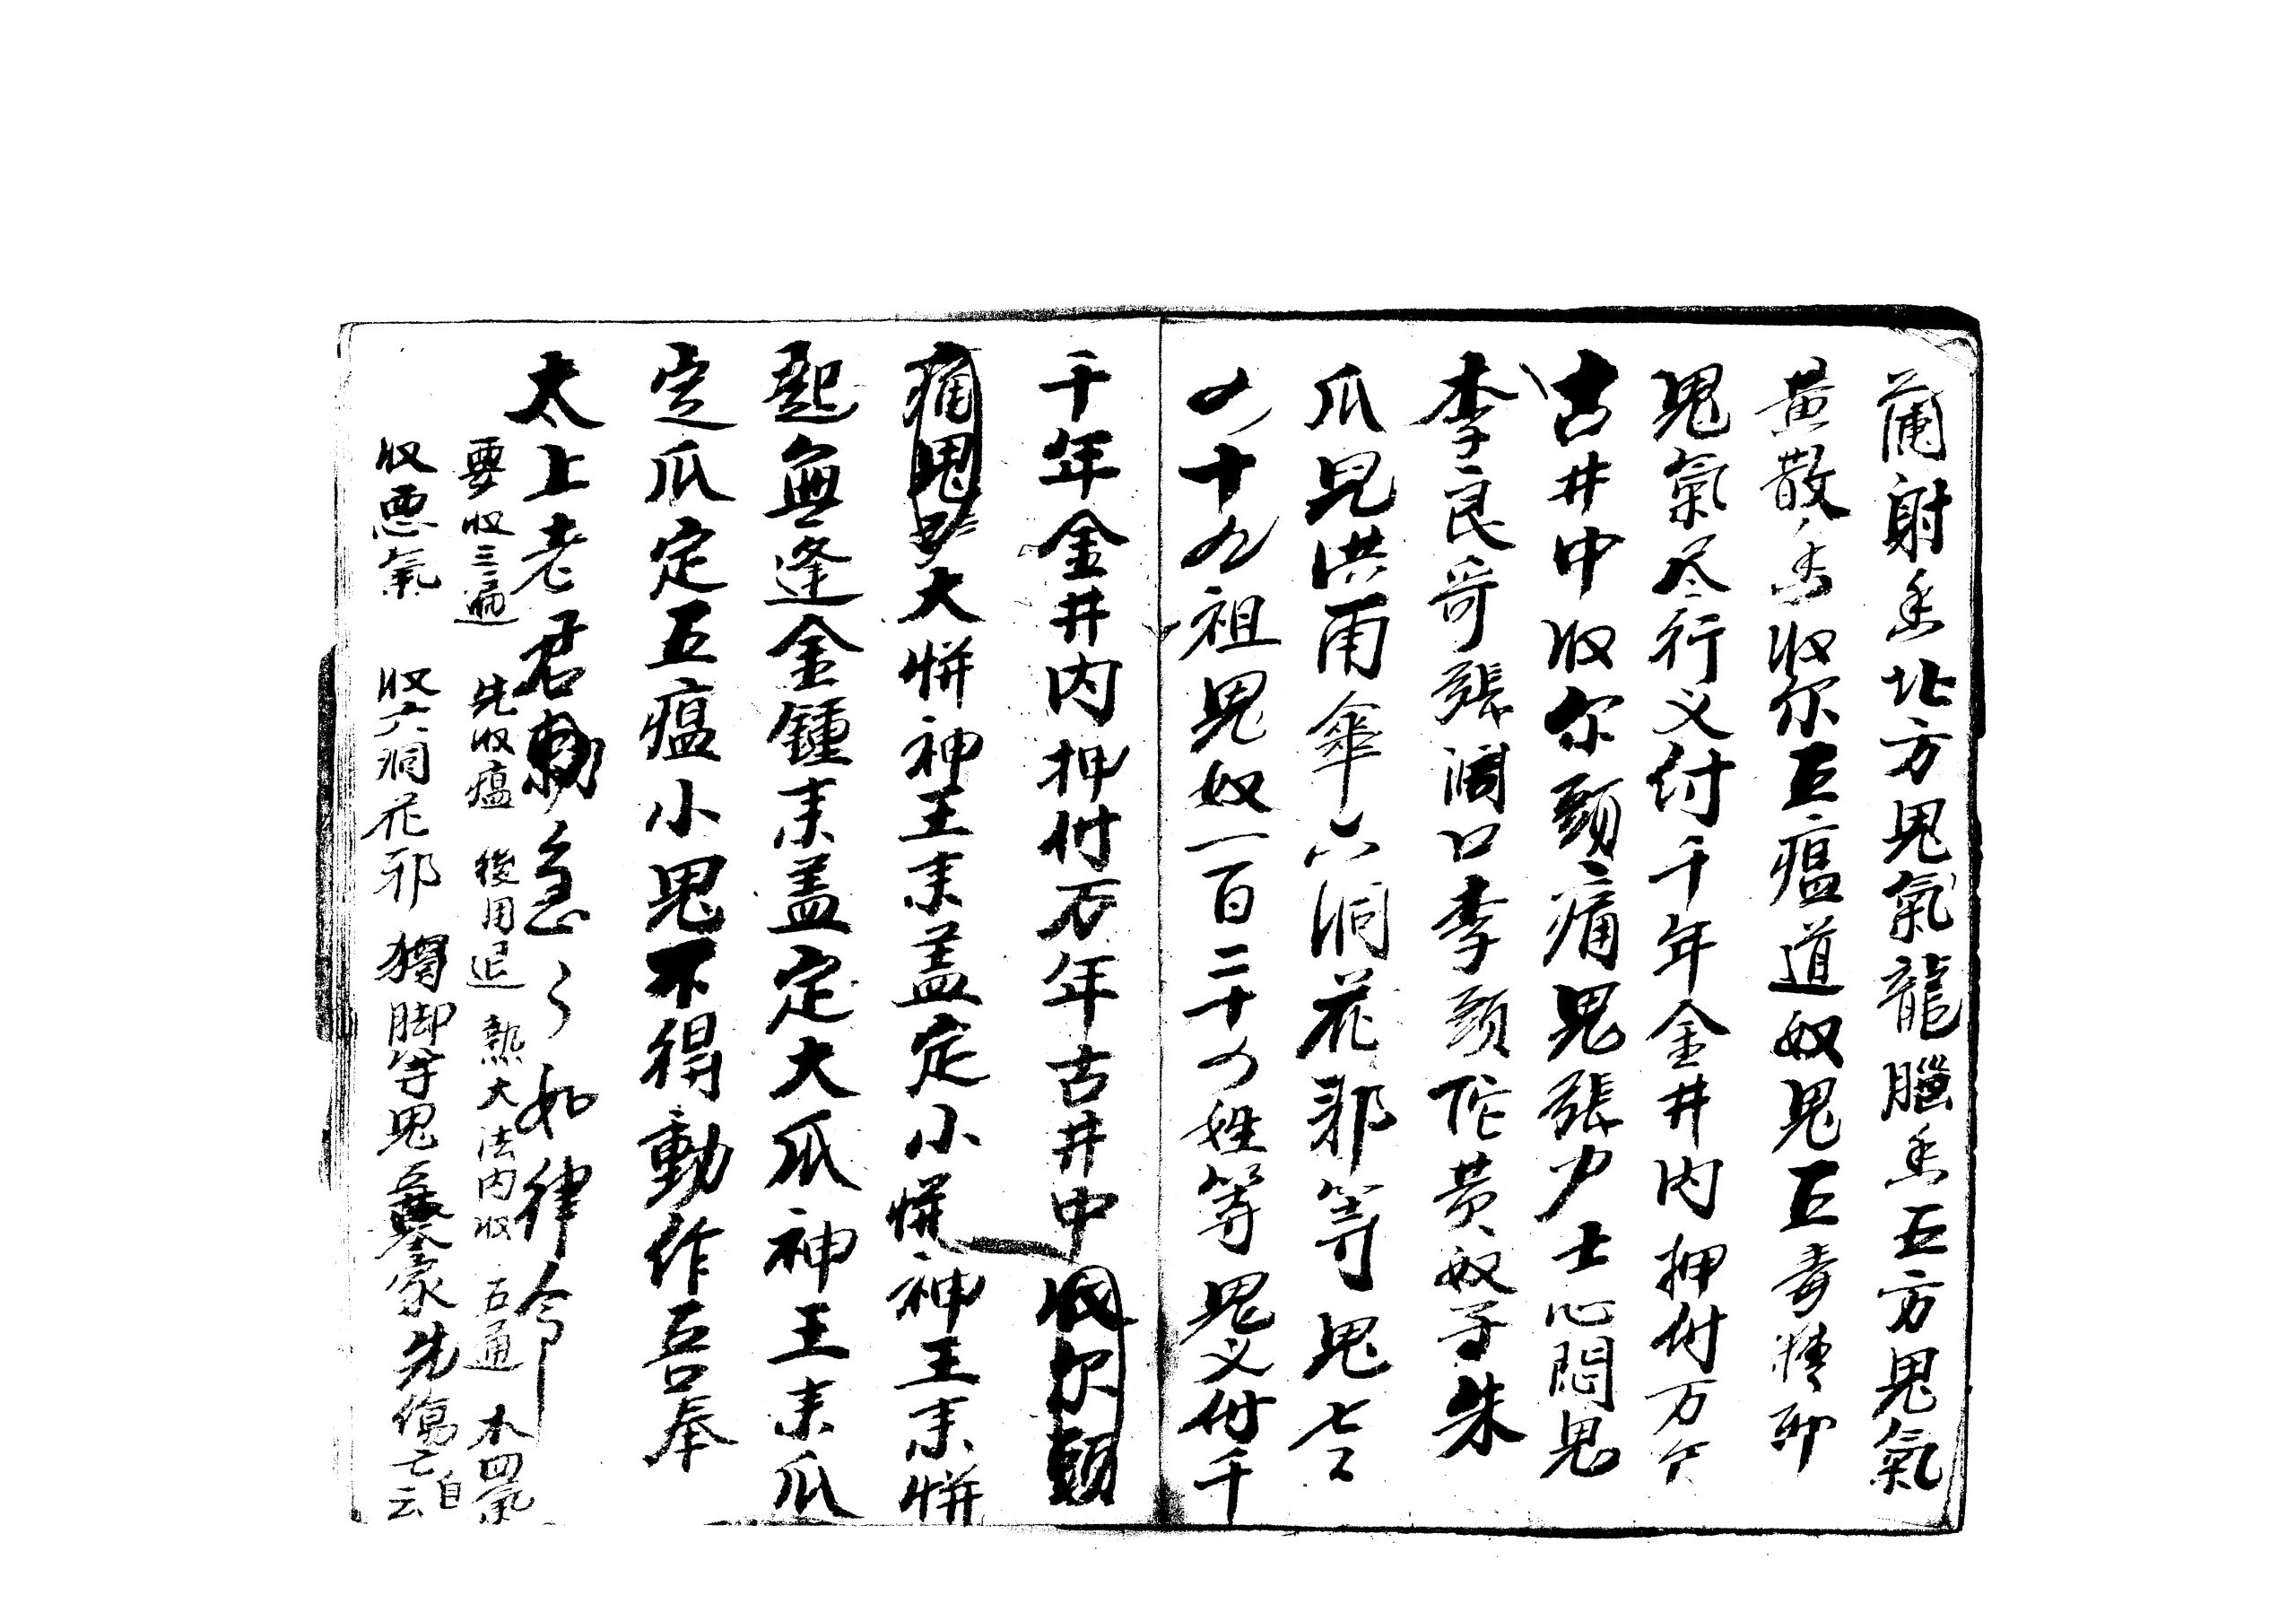 蒲射香北方鬼氣龍腦香五方鬼氣
黄散々香收尔五瘟道奴鬼五毒精邪
鬼氣尽行又付千年金井内押付万年
古井中收尔頭痛鬼張力士心悶鬼
李良哥張濶口李頭陀黄奴子朱
瓜兒洪雨傘六洞花邪等鬼七
十九祖鬼奴一百二十姓等鬼又付千
千年金井内押付万年古井中收尔頭
痛鬼大缾神王来盖定小缾神王来缾
起無逢金鍾来盖定大瓜神王来瓜
定瓜定五瘟小鬼不得動作吾奉
太上老君勅急々如律令
要收三遍 先收瘟 後用退 熱大法内收 五通 木四氣
收悪氣 收六洞花邪 獨脚等鬼 家先傷亡自云